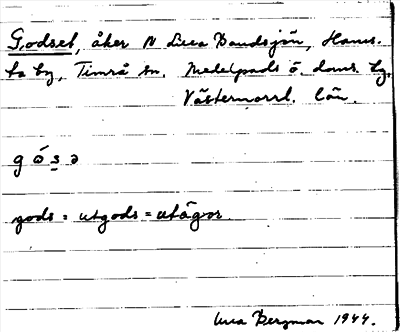 Godset, åker N Lilla Bandsjön, Hams-
ta by, Timrå sn. Medelpads ö. doms. hg.
Västernorrl. län.
g ó s ə
gods = utgods = utägor.
Bergman 1944.